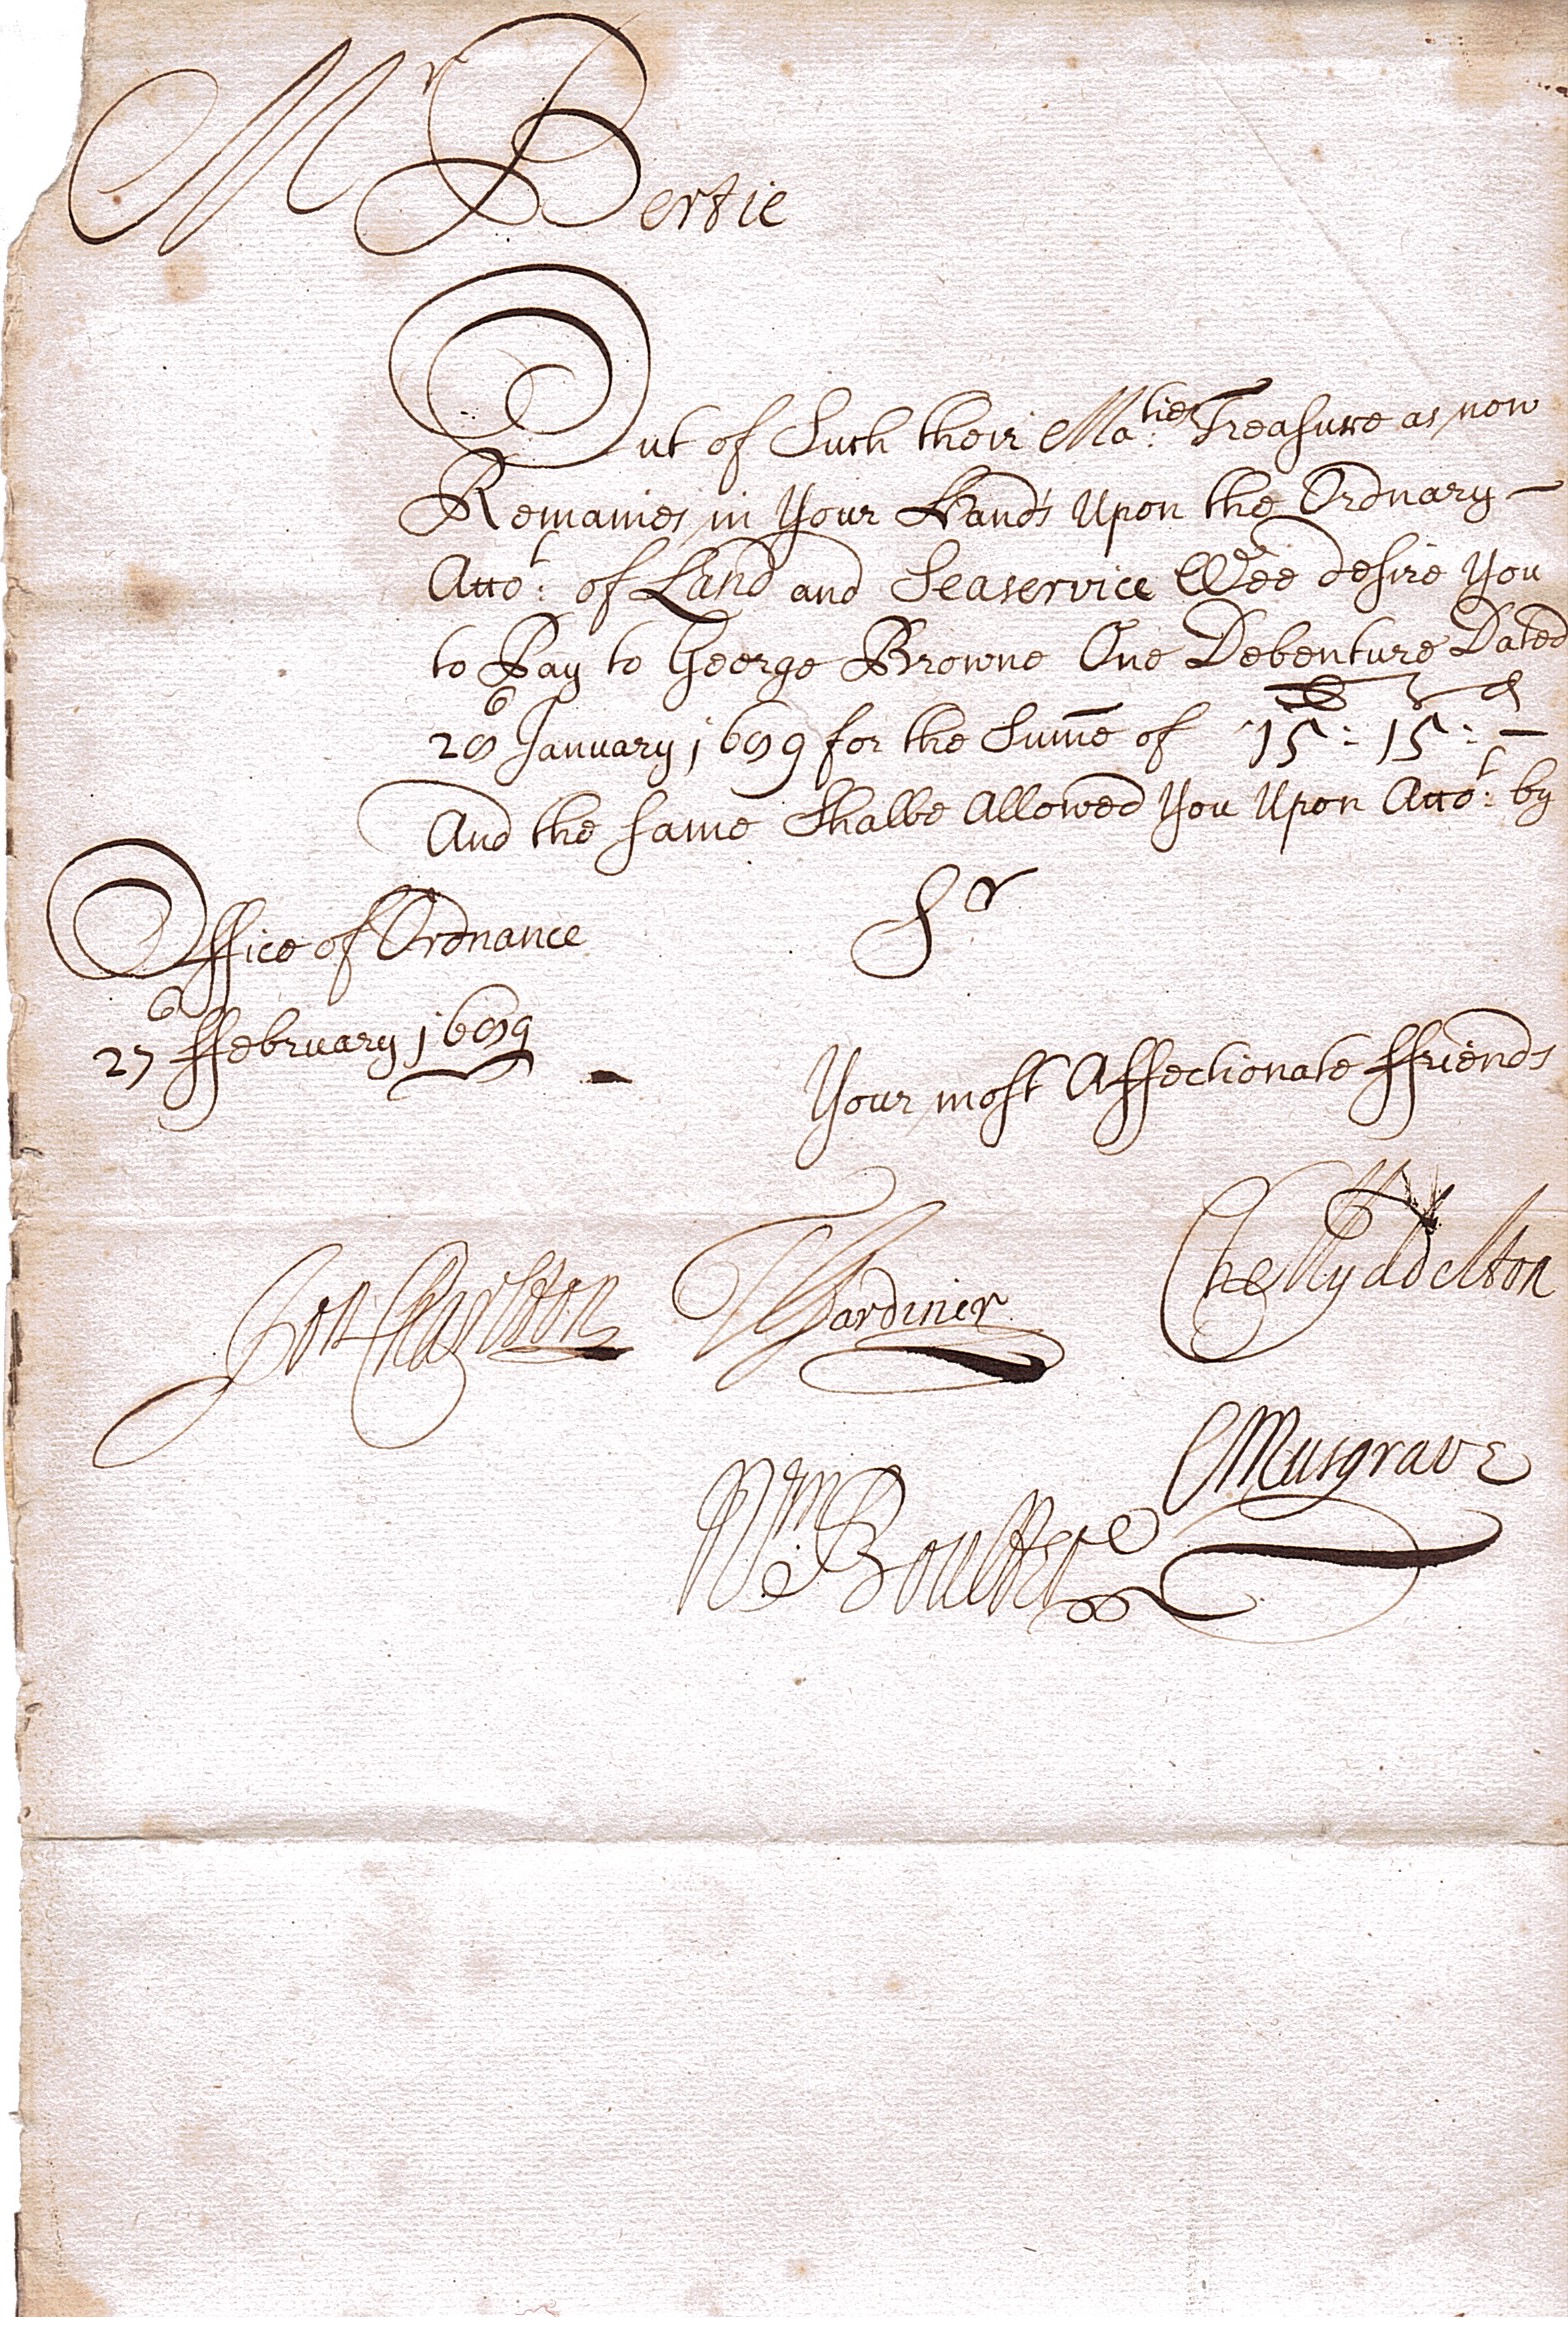 Mr Bertie
Out of Such their Ma:ties Treasure as now
Remaines in Your Hands Upon the Ordnary -
Acco:t of Land and Seaservice Wee desire You
to Pay to George Browne One Debenture Dated
28o January 1689 for the Summe of £15: 15s: -d
And the same Shalbe Allowed You Upon Acco:t by
Office of Ordnance
Sr
27o ffebruary 1689
Your most Affectionate ffriends
Jon Charlton TGardiner Che Myddelton
CMusgrave
Wm Boulter